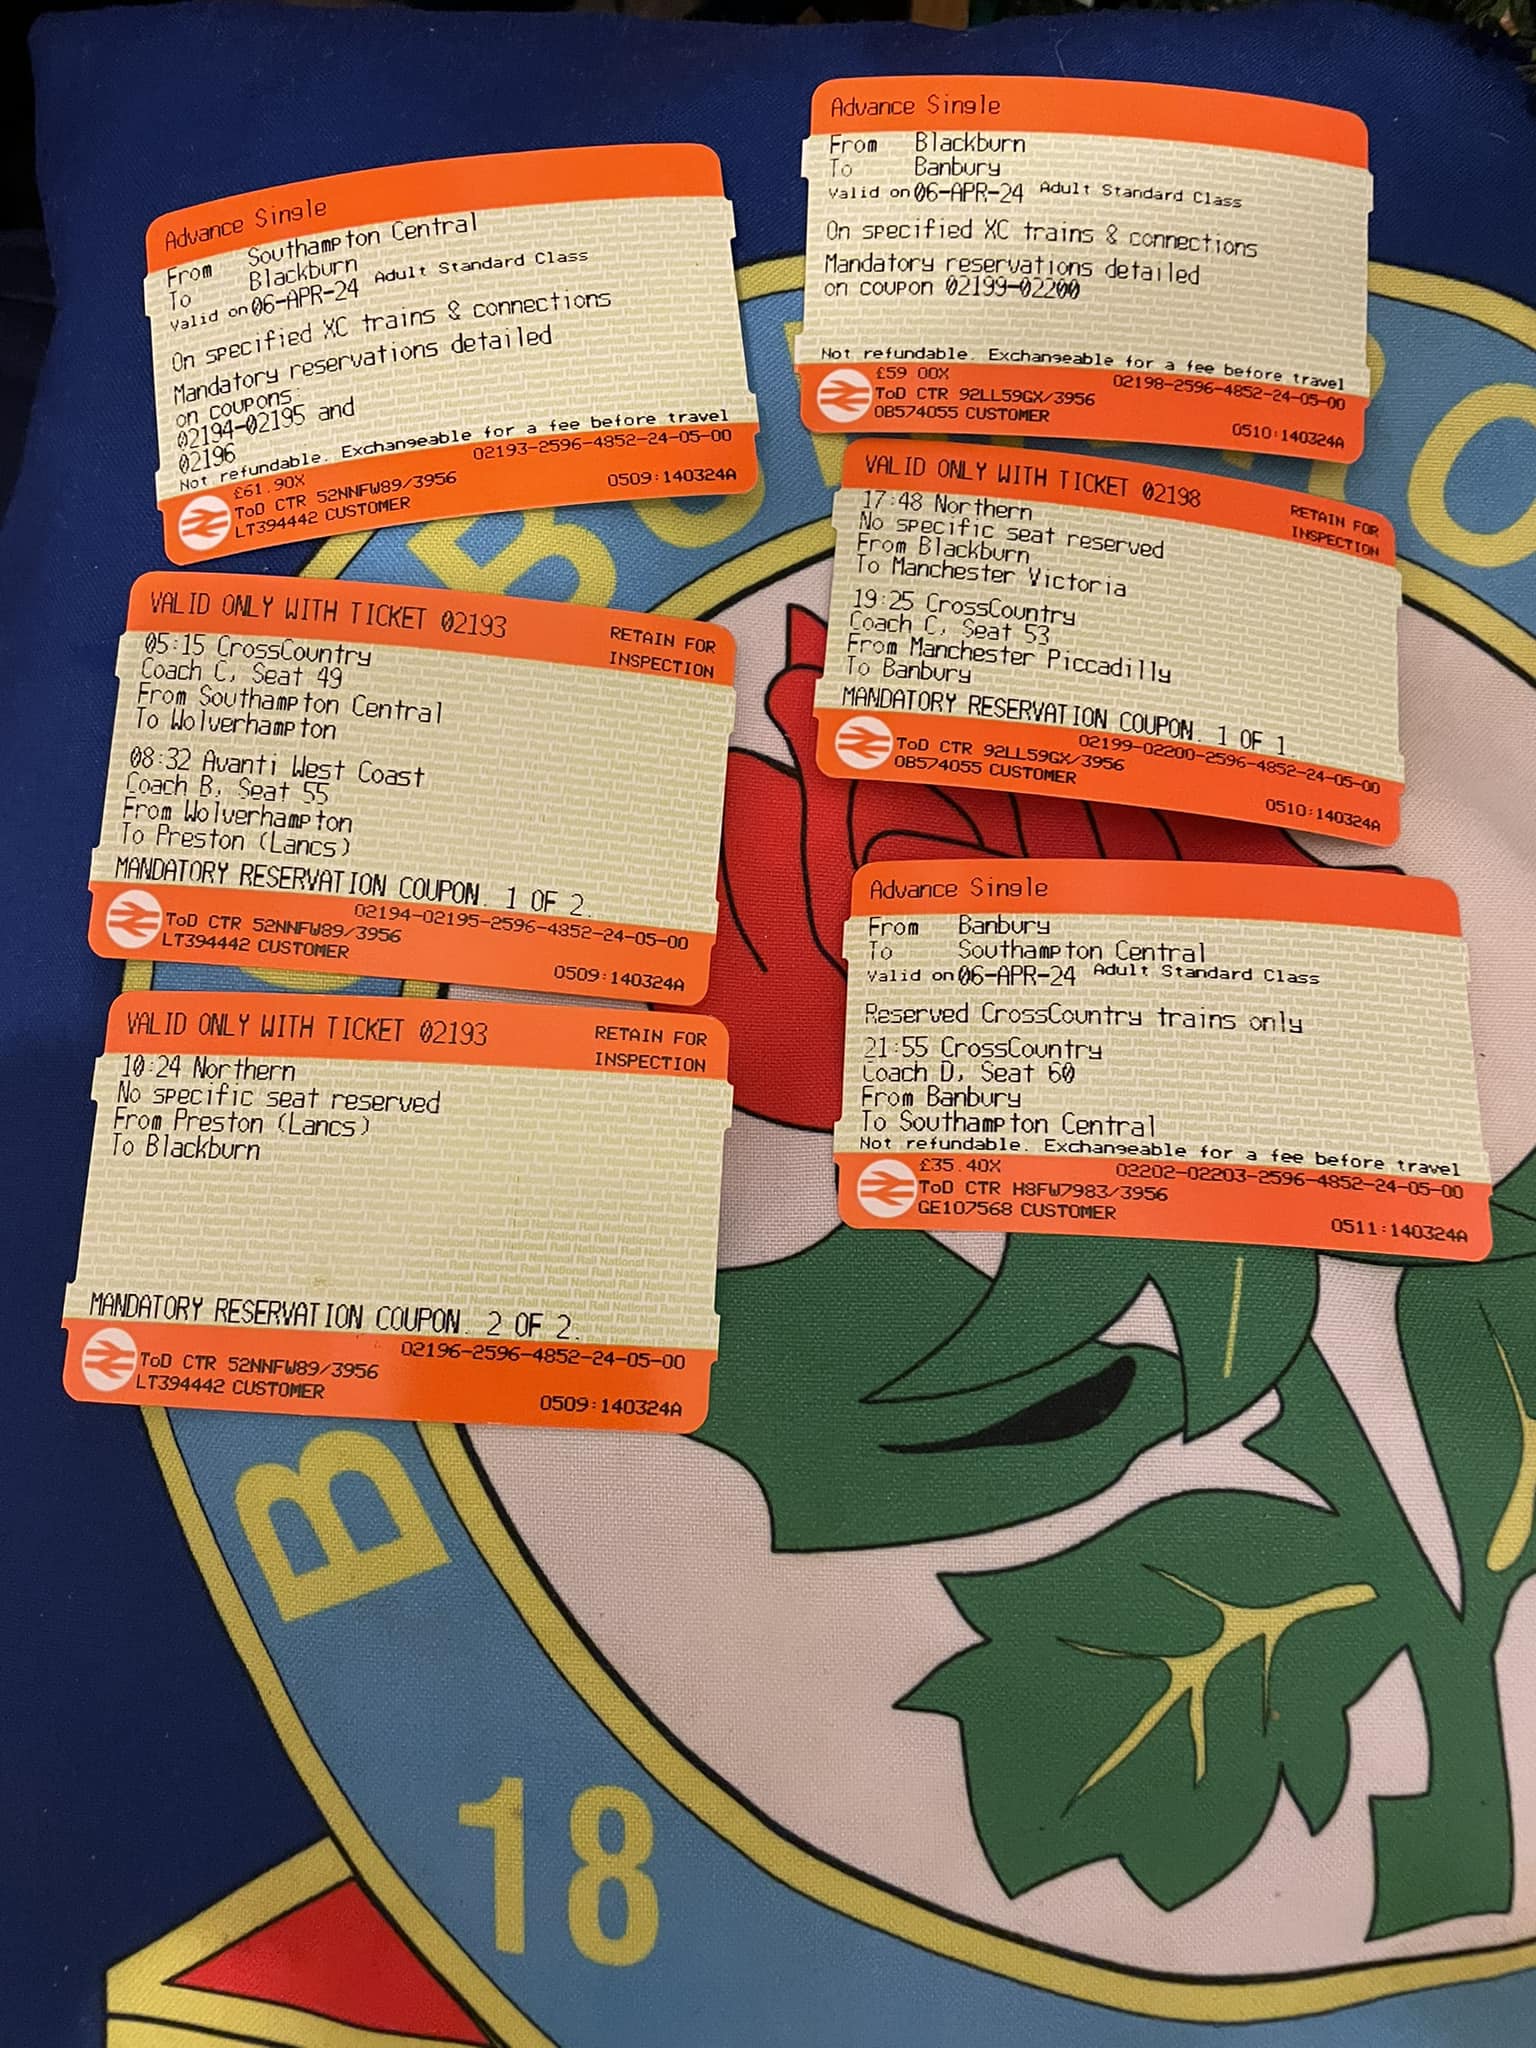 Advance Single
From Southampton Central
To Blackburn
Valid on 06-APR-24 Adult Standard Class
On specified XC trains & connections
Mandatory reservations detailed
on coupons
02194-02195 and
02196
Not refundable. Exchangeable for a fee before travel
£61.90X 02193-2596-4852-24-05-00
ToD CTR 52NNFW89/3956
LT394442 CUSTOMER 0509:140324A
VALID ONLY WITH TICKET 02193
RETAIN FOR
INSPECTION
05:15 CrossCountry
Coach C, Seat 49
From Southampton Central
To Wolverhampton
08:32 Avanti West Coast
Coach B, Seat 55
From Wolverhampton
To Preston (Lancs)
MANDATORY RESERVATION COUPON. 1 OF 2.
02194-02195-2596-4852-24-05-00
ToD CTR 52NNFW89/3956
LT394442 CUSTOMER 0509:140324A
VALID ONLY WITH TICKET 02193
RETAIN FOR
INSPECTION
10:24 Northern
No specific seat reserved
From Preston (Lancs)
To Blackburn
MANDATORY RESERVATION COUPON. 2 OF 2.
02196-2596-4852-24-05-00
ToD CTR 52NNFW89/3956
LT394442 CUSTOMER 0509:140324A
Advance Single
From Blackburn
To Banbury
Valid on 06-APR-24 Adult Standard Class
On specified XC trains & connections
Mandatory reservations detailed
on coupon 02199-02200
Not refundable. Exchangeable for a fee before travel
£59 00X 02198-2596-4852-24-05-00
ToD CTR 92LL59GX/3956
OB574055 CUSTOMER 0510:140324A
VALID ONLY WITH TICKET 02198
RETAIN FOR
INSPECTION
17:48 Northern
No specific seat reserved
From Blackburn
To Manchester Victoria
19:25 CrossCountry
Coach C, Seat 53
From Manchester Piccadilly
To Banbury
MANDATORY RESERVATION COUPON. 1 OF 1.
02199-02200-2596-4852-24-05-00
ToD CTR 92LL59GX/3956
OB574055 CUSTOMER 0510:140324A
Advance Single
From Banbury
To Southampton Central
Valid on 06-APR-24 Adult Standard Class
Reserved CrossCountry trains only
21:55 CrossCountry
Coach D, Seat 60
From Banbury
To Southampton Central
Not refundable. Exchangeable for a fee before travel
£35.40X 02202-02203-2596-4852-24-05-00
ToD CTR H8FW7983/3956
GE107568 CUSTOMER 0511:140324A
B
18